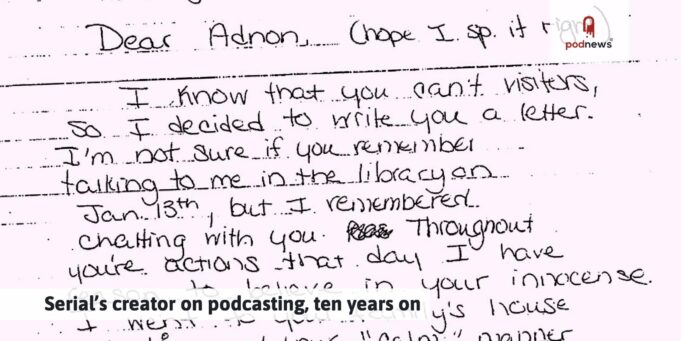 Dear Adnon, (hope I sp. it
podnews
I know that you can't visitors,
so I decided to write you a letter.
I'm not sure if you remember
talking to me in the library on
Jan. 13th, but I remembered
chatting with you. Throughout
you're actions that day I have
to believe in your innocense.
Serial's creator on podcasting, ten years on
I went to your 's house
manner